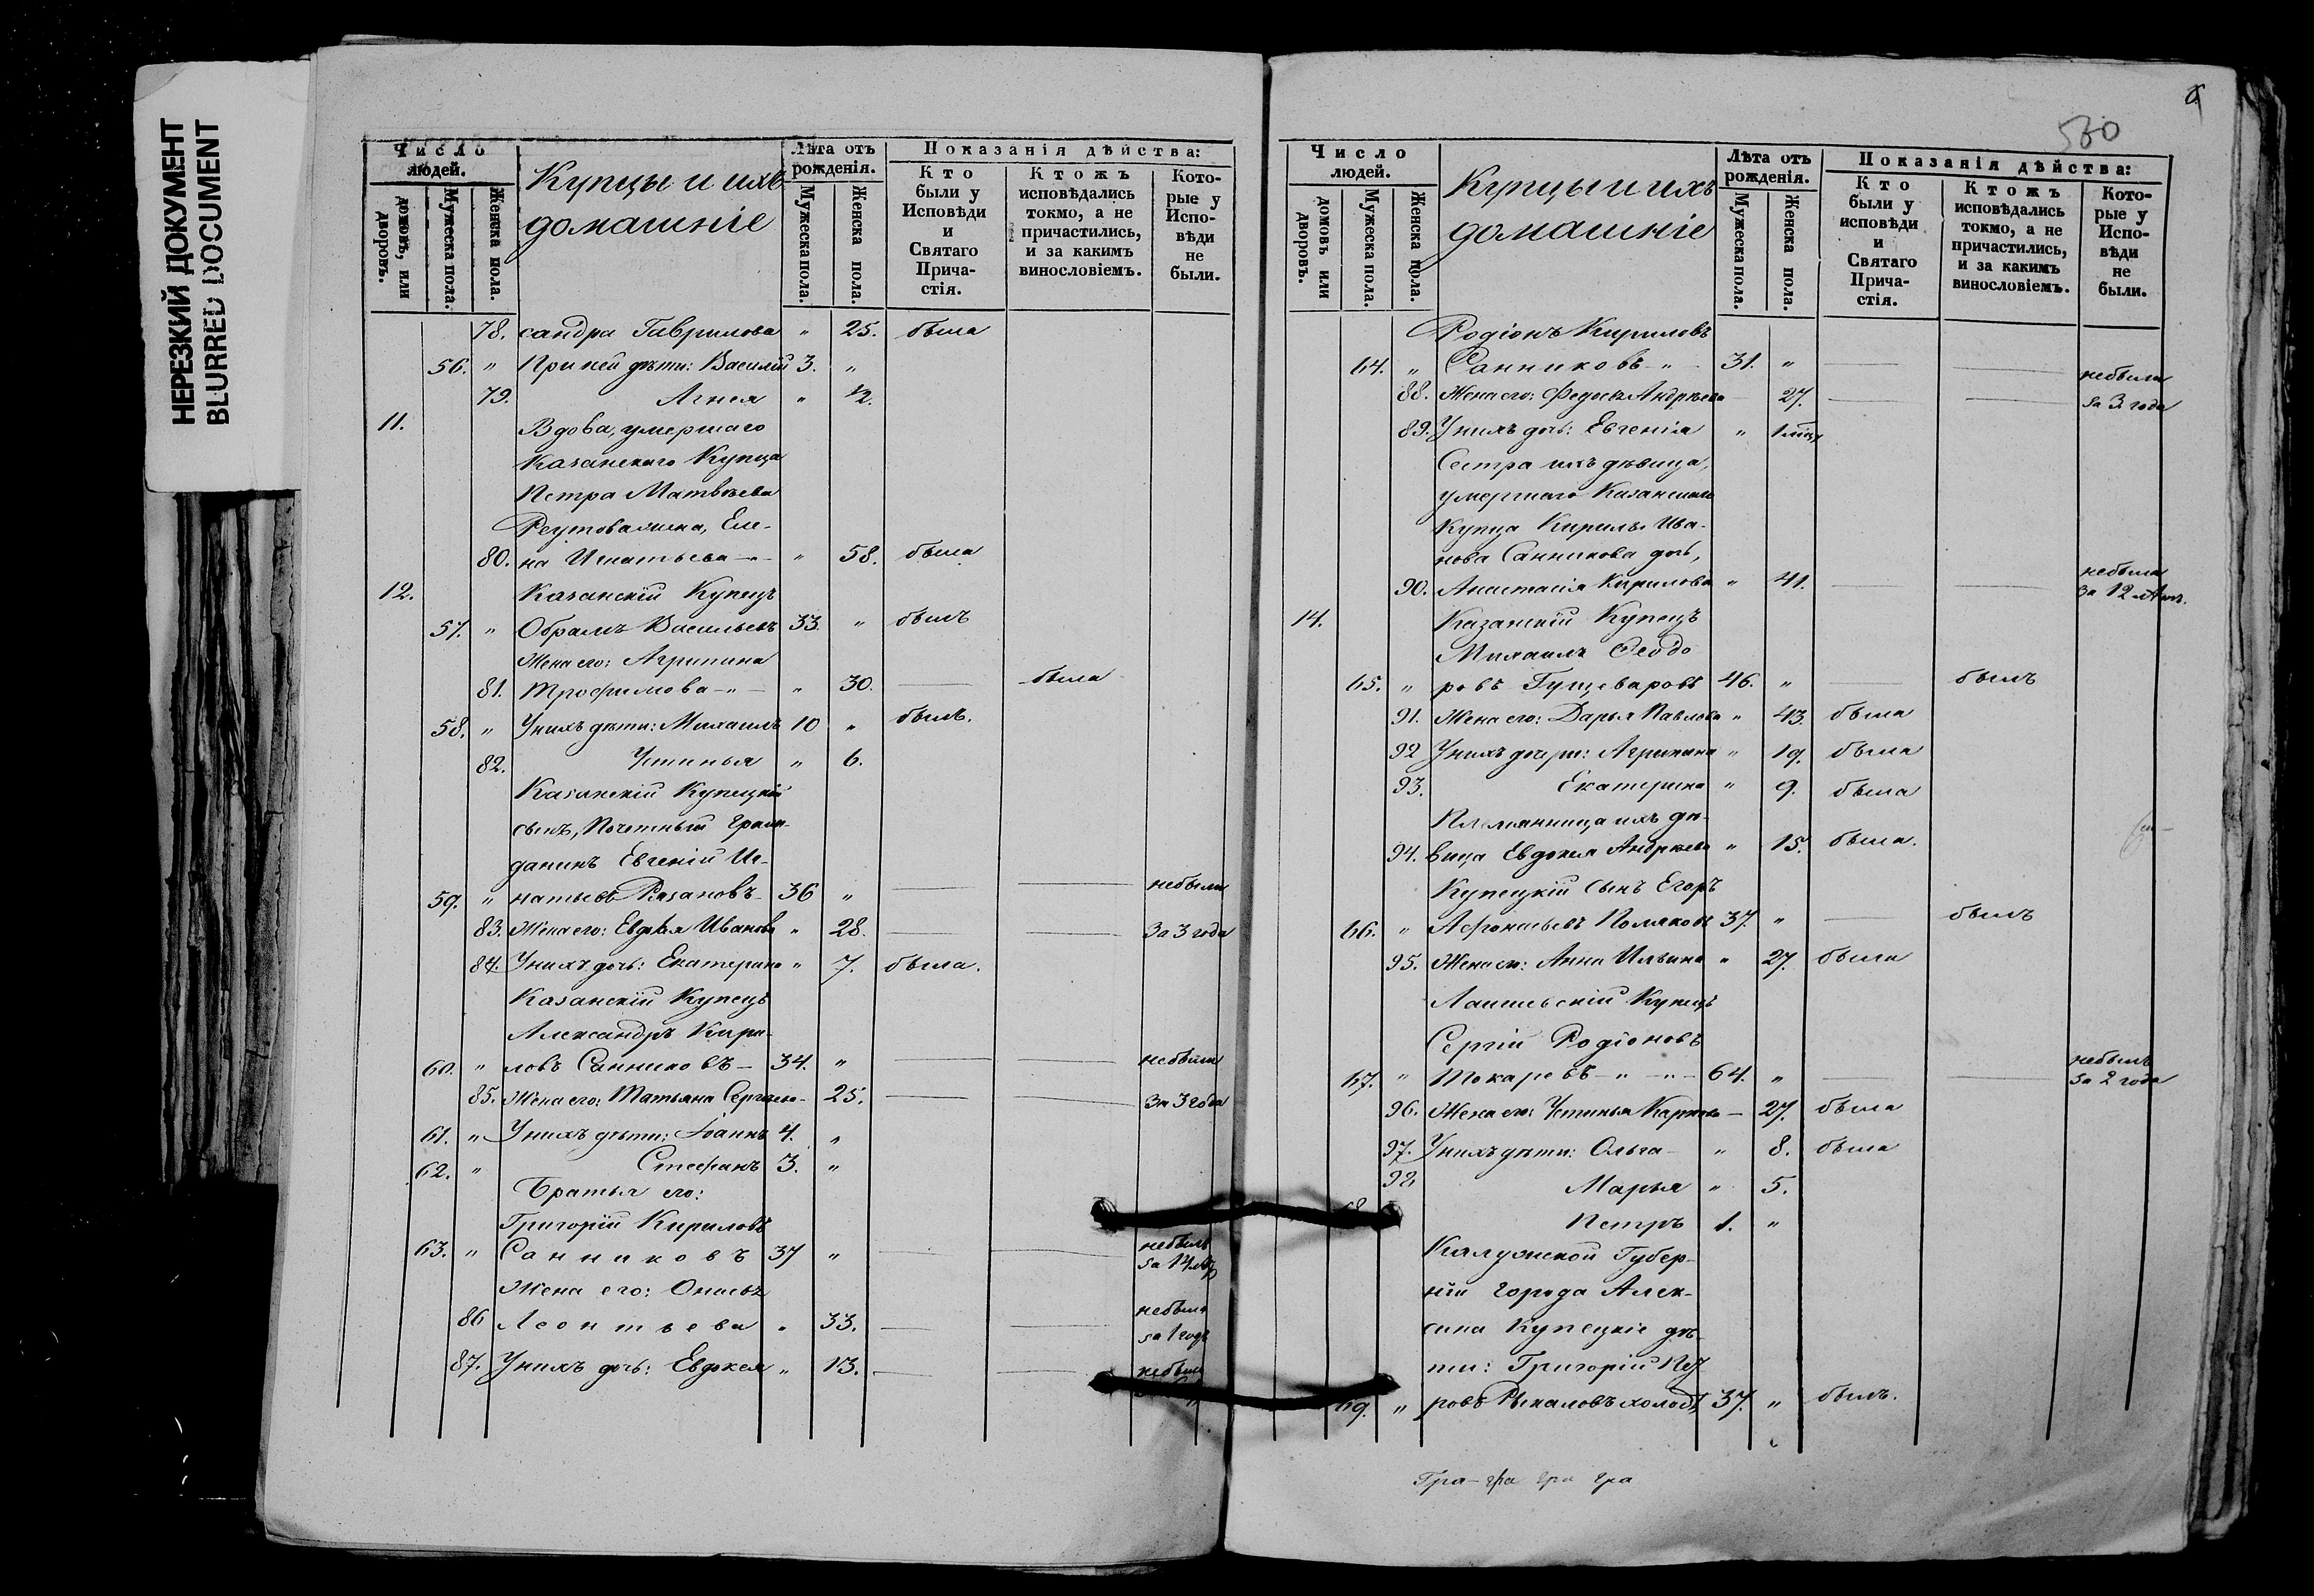 НЕРЕЗКИЙ ДОКУМЕНТ
BLURRED DOCUMENT
Число людей.
домовъ, или дворовъ.
Мужеска пола.
Женска пола.
Купцы и ихъ
домашніе
Лѣта отъ рожденія.
Мужеска пола.
Женска пола.
Показанія дѣйства:
Кто были у Исповѣди и Святаго Прича-стія.
Ктожъ исповѣдались токмо, а не причастились, и за какимъ винословіемъ.
Кото-рые у Испо-вѣди не были.
78. сандра Гаврилова " 25. была
56. " При ней дѣти: Василій 3. "
79. Агнея " 1/2.
11. Вдова, умершаго
Казанскаго Купца
Петра Матвѣева
Реутова жена, Еле-
80. на Игнатьева " 58. была
12. Казанскій Купецъ
57. " Обрамъ Васильевъ 33. " былъ
Жена его: Агрипина
81. Трофимова " 30. была
58. " У нихъ дѣти: Михаилъ 10 " былъ.
82. Устинья " 6.
Казанскій Купецкій
сынъ, Почетный Граж-
данинъ Евгеній Иг-
59. " натьевъ Рязановъ 36 " небыли
83. Жена его: Евдокія Иванова " 28. За 3 года
84. У нихъ дочь: Екатерина " 7. была.
Казанскій Купецъ
Александръ Кири-
60. " ловъ Санниковъ 34. " небыли
85. Жена его: Татьяна Сергѣева 25. За 3 года
61. " У нихъ дѣти: Іоаннъ 4. "
62. " Стефанъ 3. "
Братья его:
Григорій Кириловъ
63. " Санниковъ 37 " небылъ
за 14 лѣтъ
Жена его:
86 Леонтьева " 33. небыла
за 1 годъ
87. У нихъ дочь: Евдокея " 13. небыла
560
Число людей.
домовъ или дворовъ.
Мужеска пола.
Женска пола.
Купцы и ихъ
домашніе
Лѣта отъ рожденія.
Мужеска пола.
Женска пола.
Показанія дѣйства:
Кто были у исповѣди и Святаго Прича-стія.
Ктожъ исповѣдались токмо, а не причастились, и за какимъ винословіемъ.
Кото-рые у Испо-вѣди не были.
Родіонъ Кириловъ
64. " Санниковъ " 31. " небыли
88. Жена его: Федосья Андрѣева 27. за 3 года
89. У нихъ дочь: Евгенія " 1 мѣсяц
Сестра ихъ дѣвица,
умершаго Казанскаго
Купца Кирилы Ива-
нова Санникова дочь,
90. Анастасія Кирилова " 41. небыла
за 12 лѣтъ.
14. Казанскій Купецъ
Михаилъ Ѳеодо
65. " ровъ Гущеваровъ 46. " былъ
91. Жена его: Дарья Павлова " 43. была
92 У нихъ дочери: Агрипина " 19. была
93. Екатерина " 9. была
Племянница ихъ дѣ-
94. вица Евдокея Андрѣева " 15. была.
Купецкій сынъ Егоръ
66. " Афонасьевъ Поляковъ 37. " былъ
95. Жена его: Анна Ильина " 27. была
Лаишевскій Купецъ
Сергій Родіоновъ
67. " Токаревъ " " 64. " небылъ
за 2 года
96. Жена его: Устинья Карпова 27. была
97. У нихъ дѣти: Ольга " 8. была
98 Марья " 5.
68 Петръ 1. "
Калужской Губер-
ніи города Алек-
сина Купецкіе дѣ-
ти: Григорій Пет
69. " ровъ холостъ 37. " былъ.
Гра- гра гра гра